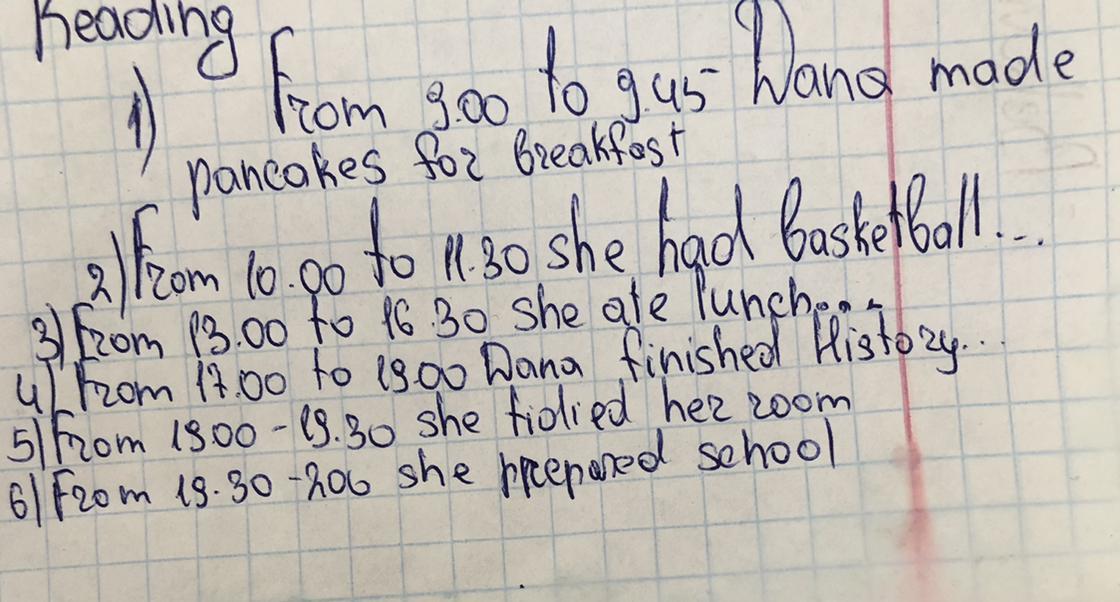 Reading
1) From 9.00 to 9.45 Dana made
pancakes for breakfast
2) From 10.00 to 11.30 she had basketball...
3) From 13.00 to 16.30 she ate lunch...
4) From 17.00 to 19.00 Dana finished History...
5) From 19.00 - 19.30 she tidied her room
6) From 19.30 - she prepared school